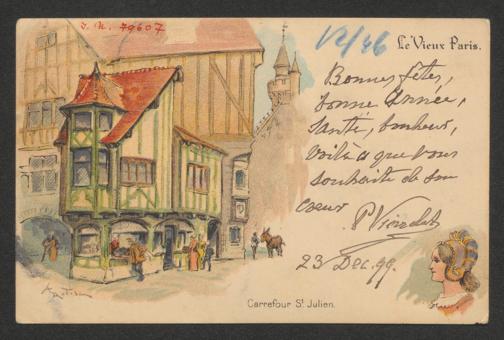 J. N. 79607
V/26
Le Vieux Paris.
Bonnes fêtes,
bonne année,
santé, bonheur,
voilà ce que vous
souhaite de son
cœur
23 Dec. 99.
Carrefour St. Julien.